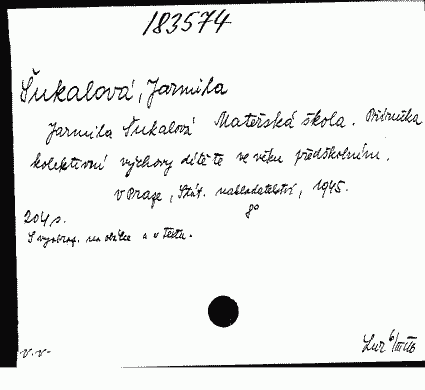 183574
Šukalová, Jarmila
Jarmila Šukalová Mateřská škola. Příručka
kolektivní výchovy dítěte ve věku předškolním.
V Praze, Stát. nakladatelství, 1945.
8°
204 s.
S vyobraz. na obálce a v textu.
v.v-